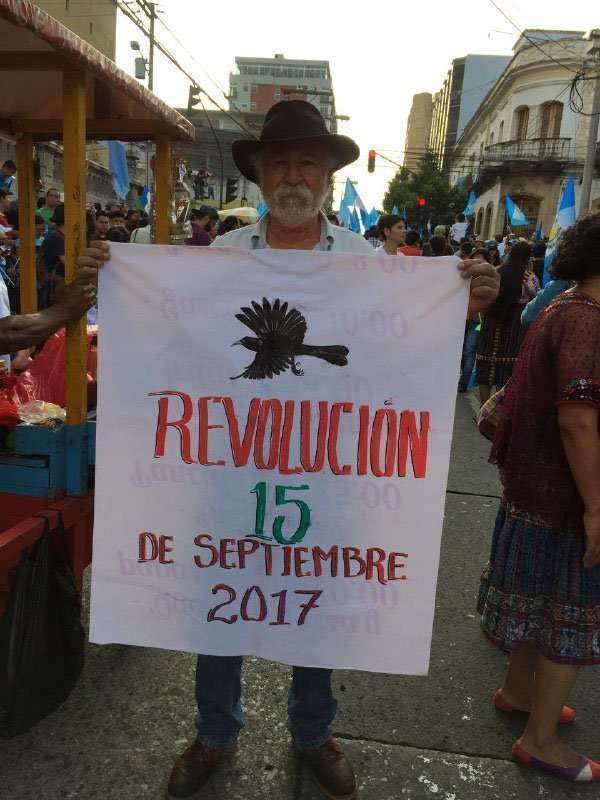 REVOLUCIÓN
15
DE SEPTIEMBRE
2017